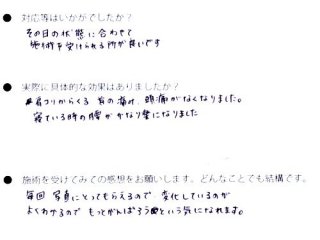 ● 対応等はいかがでしたか？
その日の状態に合わせて
施術を受けられる所が良いです
● 実際に具体的な効果はありましたか？
肩コリからくる 首の痛み、頭痛がなくなりました。
寝ている時の腰がかなり楽になりました
● 施術を受けてみての感想をお願いします。どんなことでも結構です。
毎回 写真にとってもらえるので 変化しているのが
よくわかるので もっとがんばろうという気になれます。